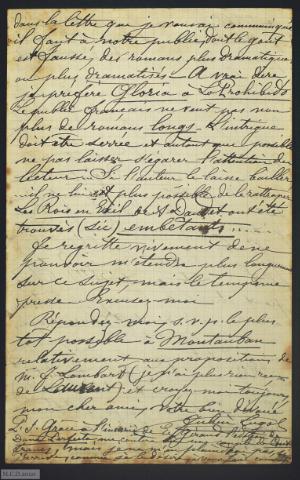 dans la lettre que je vous ai communiquée
il faut à notre public dont le goût
est faussé des romans plus dramatiques
ou plus dramatisés. A vrai dire
je préfère Gloria à Lo Prohibido
Le public français ne veut pas non
plus de romans longs. L'intrigue
doit être serrée et autant que possible
ne pas laisser s'égarer l'attention du
lecteur. Si l'auteur le laisse bâiller
il ne lui est plus possible de le rattraper
Les Rois en Exil de A. Daudet ont été
trouvés (sic) embêtants...
Je regrette vivement de ne
pouvoir m'étendre plus longuement
sur ce sujet mais le temps me
presse. Excusez-moi
Répondez-moi s.v.p. le plus
tôt possible à Montauban
relativement aux propositions de
M. (je n'ai plus rien reçu
de Laurent) et croyez moi toujours
mon cher ami, votre bien dévoué
P.S. Grâce à
Doña Perfecta
francs, mais je ne